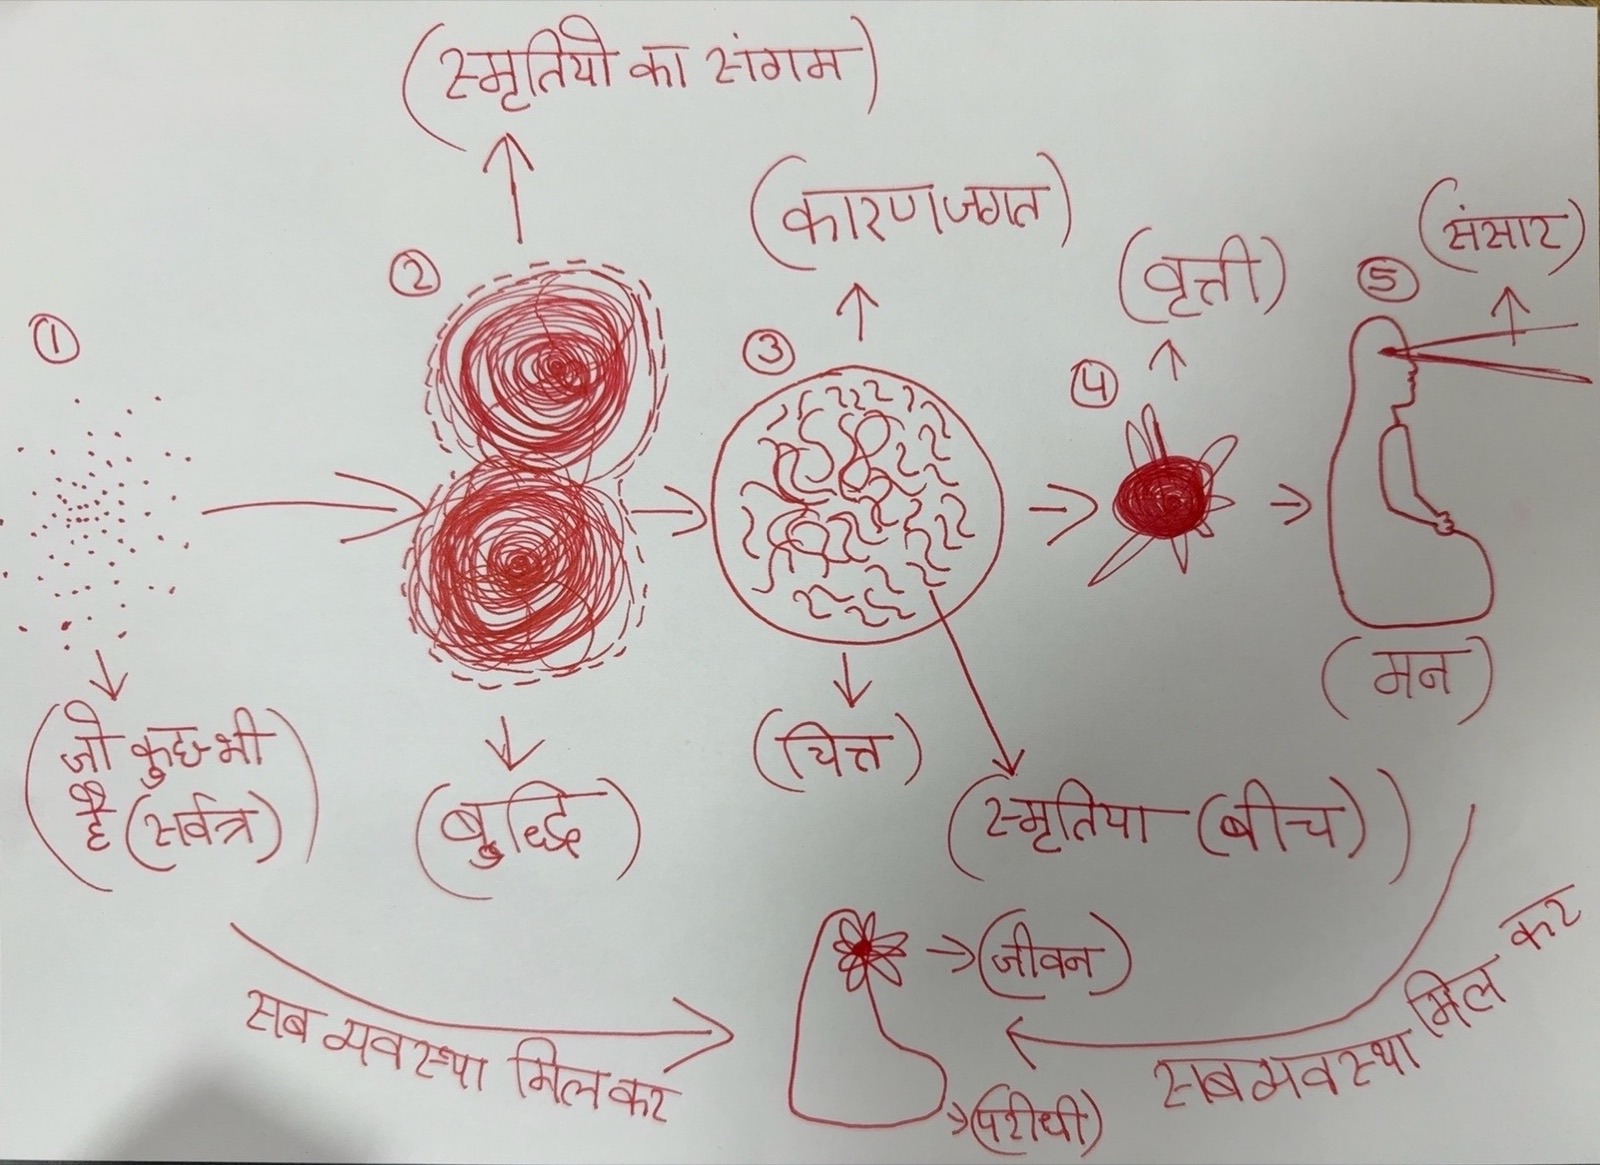 (स्मृतियो का संगम)
(कारण जगत)
(संसार)
(वृत्ती)
①
②
③
④
⑤
(जो कुछ-भी
है (सर्वत्र))
(बुद्धि)
(चित्त)
(स्मृतिया (बीच))
(मन)
(जीवन)
(परीधी)
सब अवस्था मिल कर
सब अवस्था मिल कर